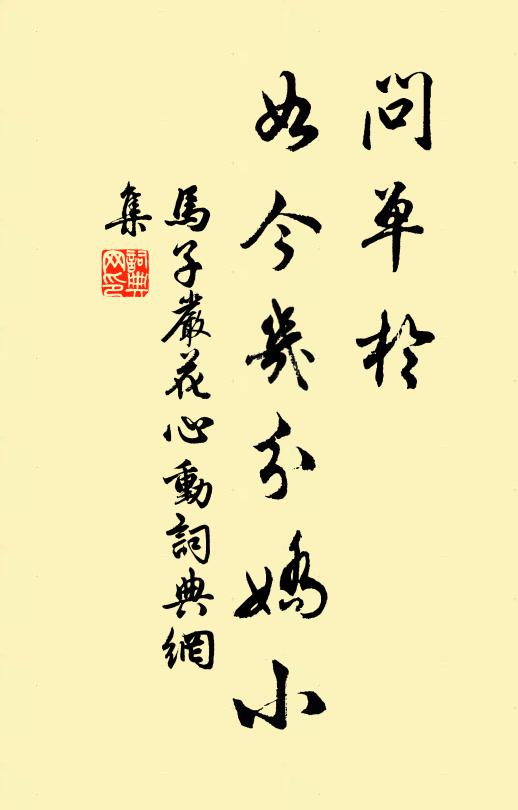 問单於
如今幾分嬌小
馬子嚴花心動詞典網
集
詞典
网印